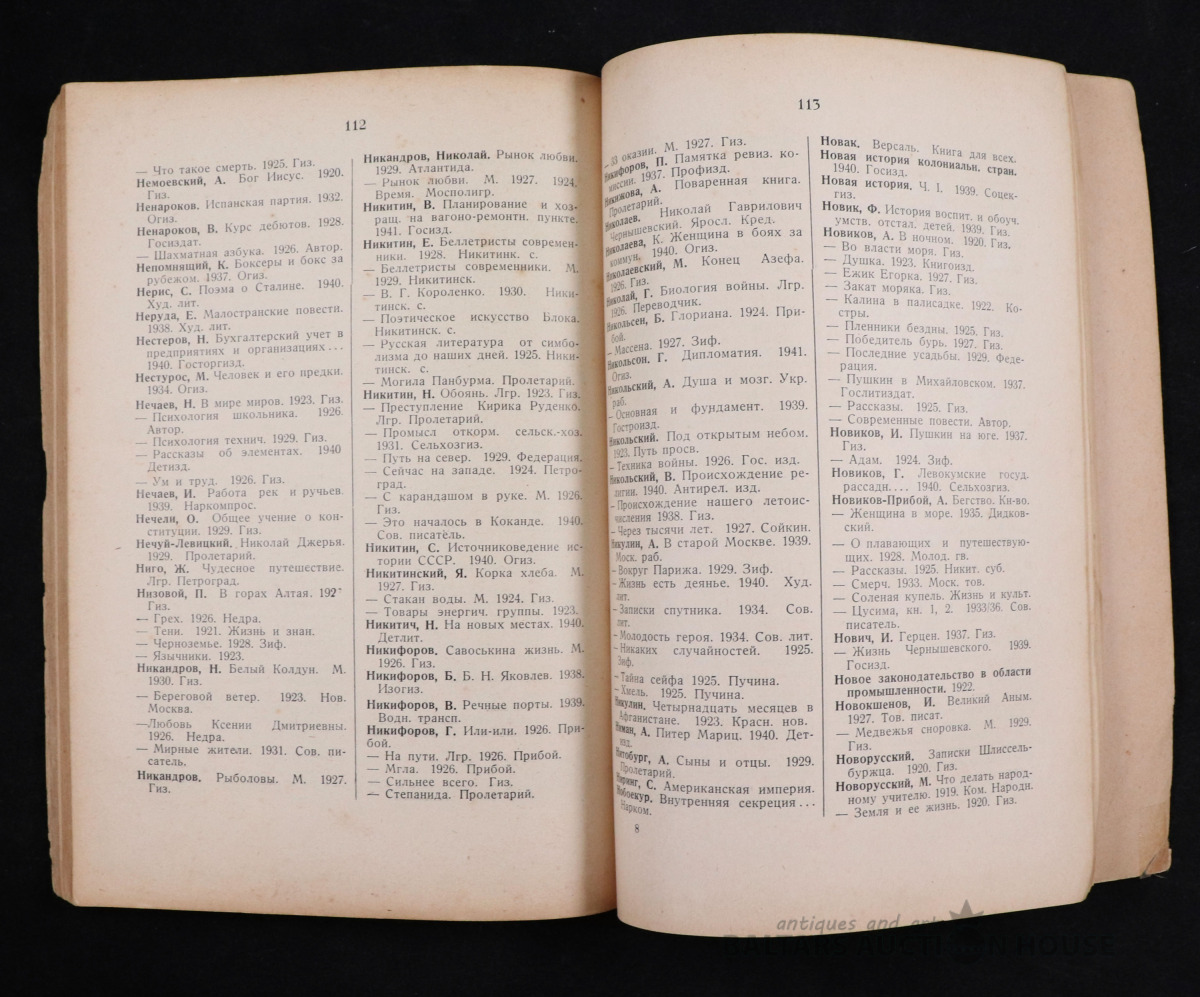 112
— Что такое смерть. 1925. Гиз.
Немоевский, А. Бог Иисус. 1920.
Гиз.
Ненароков. Испанская партия. 1932.
Огиз.
Ненароков, В. Курс дебютов. 1928.
Госиздат.
— Шахматная азбука. 1926. Автор.
Непомнящий, К. Боксеры и бокс за
рубежом. 1937. Огиз.
Нерис, С. Поэма о Сталине. 1940.
Худ. лит.
Неруда, Е. Малостранские повести.
1938. Худ. лит.
Нестеров, Н. Бухгалтерский учет в
предприятиях и организациях...
1940. Госторгизд.
Нестурос, М. Человек и его предки.
1934. Огиз.
Нечаев, Н. В мире миров. 1923. Гиз.
— Психология школьника. 1926.
Автор.
— Психология технич. 1929. Гиз.
— Рассказы об элементах. 1940
Детизд.
— Ум и труд. 1926. Гиз.
Нечаев, И. Работа рек и ручьев.
1939. Наркомпрос.
Нечели, О. Общее учение о кон-
ституции. 1929. Гиз.
Нечуй-Левицкий, Николай Джерья.
1929. Пролетарий.
Ниго, Ж. Чудесное путешествие.
Лгр. Петроград.
Низовой, П. В горах Алтая. 192
Гиз.
— Грех. 1926. Недра.
— Тени. 1921. Жизнь и знан.
— Черноземье. 1928. Зиф.
— Язычники. 1923.
Никандров, Н. Белый Колдун. М.
1930. Гиз.
— Береговой ветер. 1923. Нов.
Москва.
—Любовь Ксении Дмитриевны.
1926. Недра.
— Мирные жители. 1931. Сов. пи-
сатель.
Никандров. Рыболовы. М. 1927.
Гиз.
Никандров, Николай. Рынок любви.
1929. Атлантида.
— Рынок любви. М. 1927. 1924.
Время. Мосполигр.
Никитин, В. Планирование и хоз-
ращ. на вагоно-ремонтн. пункте.
1941. Госизд.
Никитин, Е. Беллетристы современ-
ники. 1928. Никитинк. с.
— Беллетристы современники. М.
1929. Никитинск.
— В. Г. Короленко. 1930. Ники-
тинск. с.
— Поэтическое искусство Блока.
Никитинск. с.
— Русская литература от симбо-
лизма до наших дней. 1925. Ники-
тинск. с.
— Могила Панбурма. Пролетарий.
Никитин, Н. Обоянь. Лгр. 1923. Гиз.
— Преступление Кирика Руденко.
Лгр. Пролетарий.
— Промысл откорм. сельск.-хоз.
1931. Сельхозгиз.
— Путь на север. 1929. Федерация.
— Сейчас на западе. 1924. Петро-
град.
— С карандашом в руке. М. 1926.
Гиз.
— Это началось в Коканде. 1940.
Сов. писатель.
Никитин, С. Источниковедение ис-
тории СССР. 1940. Огиз.
Никитинский, Я. Корка хлеба. М.
1927. Гиз.
— Стакан воды. М. 1924. Гиз.
— Товары энергич. группы. 1923.
Никитич, Н. На новых местах. 1940.
Детлит.
Никифоров. Савоськина жизнь. М.
1926. Гиз.
Никифоров, Б. Б. Н. Яковлев. 1938.
Изогиз.
Никифоров, В. Речные порты. 1939.
Водн. трансп.
Никифоров, Г. Или-или. 1926. При-
бой.
— На пути. Лгр. 1926. Прибой.
— Мгла. 1926. Прибой.
— Сильнее всего. Гиз.
— Степанида. Пролетарий.
113
оказии. М. 1927. Гиз.
Никифоров, П. Памятка ревиз. ко-
миссии. 1937. Профизд.
А. Поваренная книга.
Пролетарий.
Николаев. Николай Гаврилович
Чернышевский. Яросл. Кред.
Николаева, К. Женщина в боях за
коммун. 1940. Огиз.
Николаевский, М. Конец Азефа.
1926. Гиз.
Николай, Г. Биология войны. Лгр.
1926. Переводчик.
Никольсен, Б. Глориана. 1924. При-
бой.
— Массена. 1927. Зиф.
Никольсон. Г. Дипломатия. 1941.
Огиз.
Никольский, А. Душа и мозг. Укр.
раб.
— Основная и фундамент. 1939.
Гостроизд.
Никольский. Под открытым небом.
1923. Путь просв.
— Техника войны. 1926. Гос. изд.
Никольский, В. Происхождение ре-
лигии. 1940. Антирел. изд.
— Происхождение нашего летоис-
числения 1938. Гиз.
— Через тысячи лет. 1927. Сойкин.
Никулин, А. В старой Москве. 1939.
Моск. раб.
— Вокруг Парижа. 1929. Зиф.
— Жизнь есть деянье. 1940. Худ.
лит.
— Записки спутника. 1934. Сов.
лит.
— Молодость героя. 1934. Сов. лит.
— Никаких случайностей. 1925.
Зиф.
— Тайна сейфа 1925. Пучина.
— Хмель. 1925. Пучина.
Никулин. Четырнадцать месяцев в
Афганистане. 1923. Красн. нов.
А. Питер Мариц. 1940. Дет-
изд.
Нитобург, А. Сыны и отцы. 1929.
Пролетарий.
Ниринг, С. Американская империя.
Внутренняя секреция...
Нарком.
8
Новак. Версаль. Книга для всех.
Новая история колониальн. стран.
1940. Госизд.
Новая история. Ч. I. 1939. Соцек-
гиз.
Новик, Ф. История воспит. и обуч.
умств. отстал. детей. 1939. Гиз.
Новиков, А. В ночном. 1920. Гиз.
— Во власти моря. Гиз.
— Душка. 1923. Книгоизд.
— Ежик Егорка. 1927. Гиз.
— Закат моряка. Гиз.
— Калина в палисадке. 1922. Ко-
стры.
— Пленники бездны. 1925. Гиз.
— Победитель бурь. 1927. Гиз.
— Последние усадьбы. 1929. Феде-
рация.
— Пушкин в Михайловском. 1937.
Гослитиздат.
— Рассказы. 1925. Гиз.
— Современные повести. Автор.
Новиков, И. Пушкин на юге. 1937.
Гиз.
— Адам. 1924. Зиф.
Новиков, Г. Левокумские госуд.
рассадн.... 1940. Сельхозгиз.
Новиков-Прибой, А. Бегство. Кн-во.
— Женщина в море. 1935. Дидков-
ский.
— О плавающих и путешествую-
щих. 1928. Молод. гв.
— Рассказы. 1925. Никит. суб.
— Смерч. 1933. Моск. тов.
— Соленая купель. Жизнь и культ.
— Цусима, кн. 1, 2. 1933/36. Сов.
писатель.
Нович, И. Герцен. 1937. Гиз.
— Жизнь Чернышевского. 1939.
Госизд.
Новое законодательство в области
промышленности. 1922.
Новокшенов, И. Великий Аным.
1927. Тов. писат.
— Медвежья сноровка. М. 1929.
Гиз.
Новорусский. Записки Шлиссель-
буржца. 1920. Гиз.
Новорусский, М. Что делать народ-
ному учителю. 1919. Ком. Народн.
— Земля и ее жизнь. 1920. Гиз.
antiques and arts
BALTARS AUCTION HOUSE